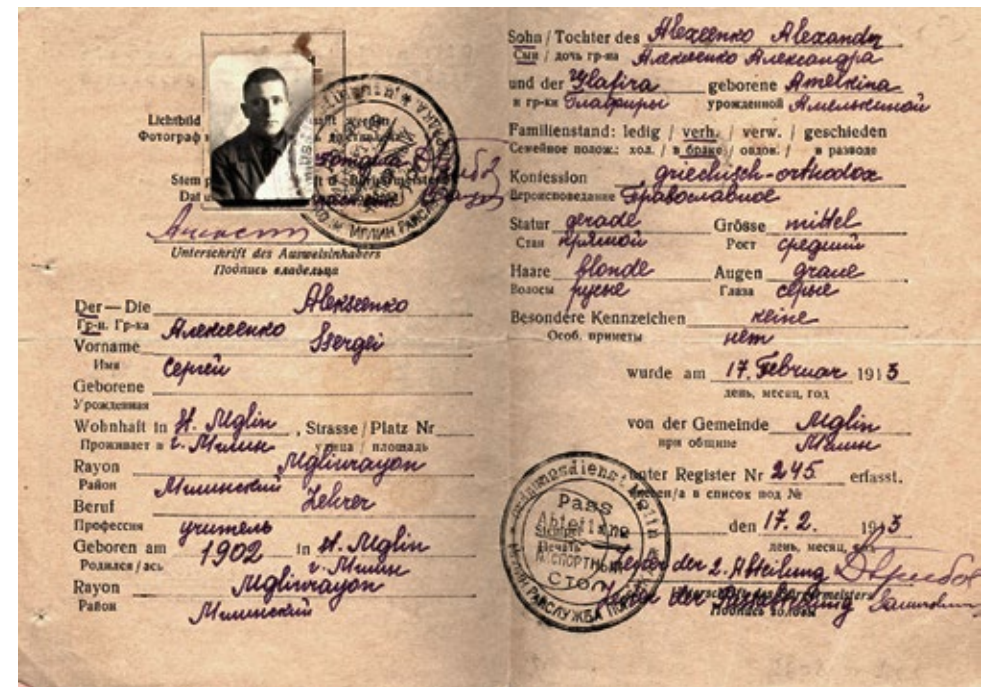 Lichtbild
Фотограф
Stem
Dat
Unterschrift des Ausweisinhabers
Подпись владельца
Der — Die Alekseenko
Гр-н. Гр-ка Алексеенко
Vorname Ssergei
Имя Сергей
Geborene
Урожденная
Wohnhaft in St. Mglin, Strasse / Platz Nr
Проживает в г. Мглин улица / площадь
Rayon Mglinrayon
Район Мглинский
Beruf Lehrer
Профессия учитель
Geboren am 1902 in St. Mglin
Родился / ась г. Мглин
Rayon Mglinrayon
Район Мглинский
Sohn / Tochter des Alexeenko Alexander
Сын / дочь гр-на Алексеенко Александра
und der Glafira geborene Amelkina
и гр-ки Глафиры урожденной Амелькиной
Familienstand: ledig / verh. / verw. / geschieden
Семейное полож.: хол. / в браке / овдов. / в разводе
Konfession griechisch-orthodox
Вероисповедание Православное
Statur gerade Grösse mittel
Стан прямой Рост средний
Haare blonde Augen graue
Волосы русые Глаза серые
Besondere Kennzeichen keine
Особ. приметы нет
wurde am 17. Februar 1943
день, месяц, год
von der Gemeinde Mglin
при общине Мглин
unter Register Nr 245 erfasst.
в список под №
den 17. 2. 1943
день, месяц, год
Pass
Abteilung
Stempel
Печать
Паспортный
Стол
Leiter der 2. Abteilung
Leiter der
Подпись головы